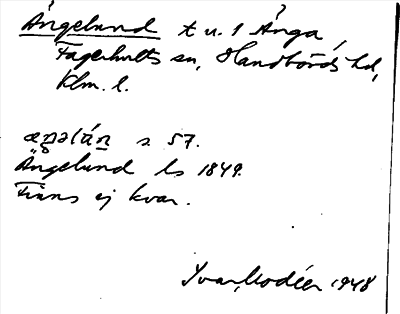 Ängelund t u. 1 Ånga,
Fagerhults sn, Handbörds hd,
Klm. l.
s 57.
Ängelund ls 1849.
Finns ej kvar.
Ivar Modéer 1948